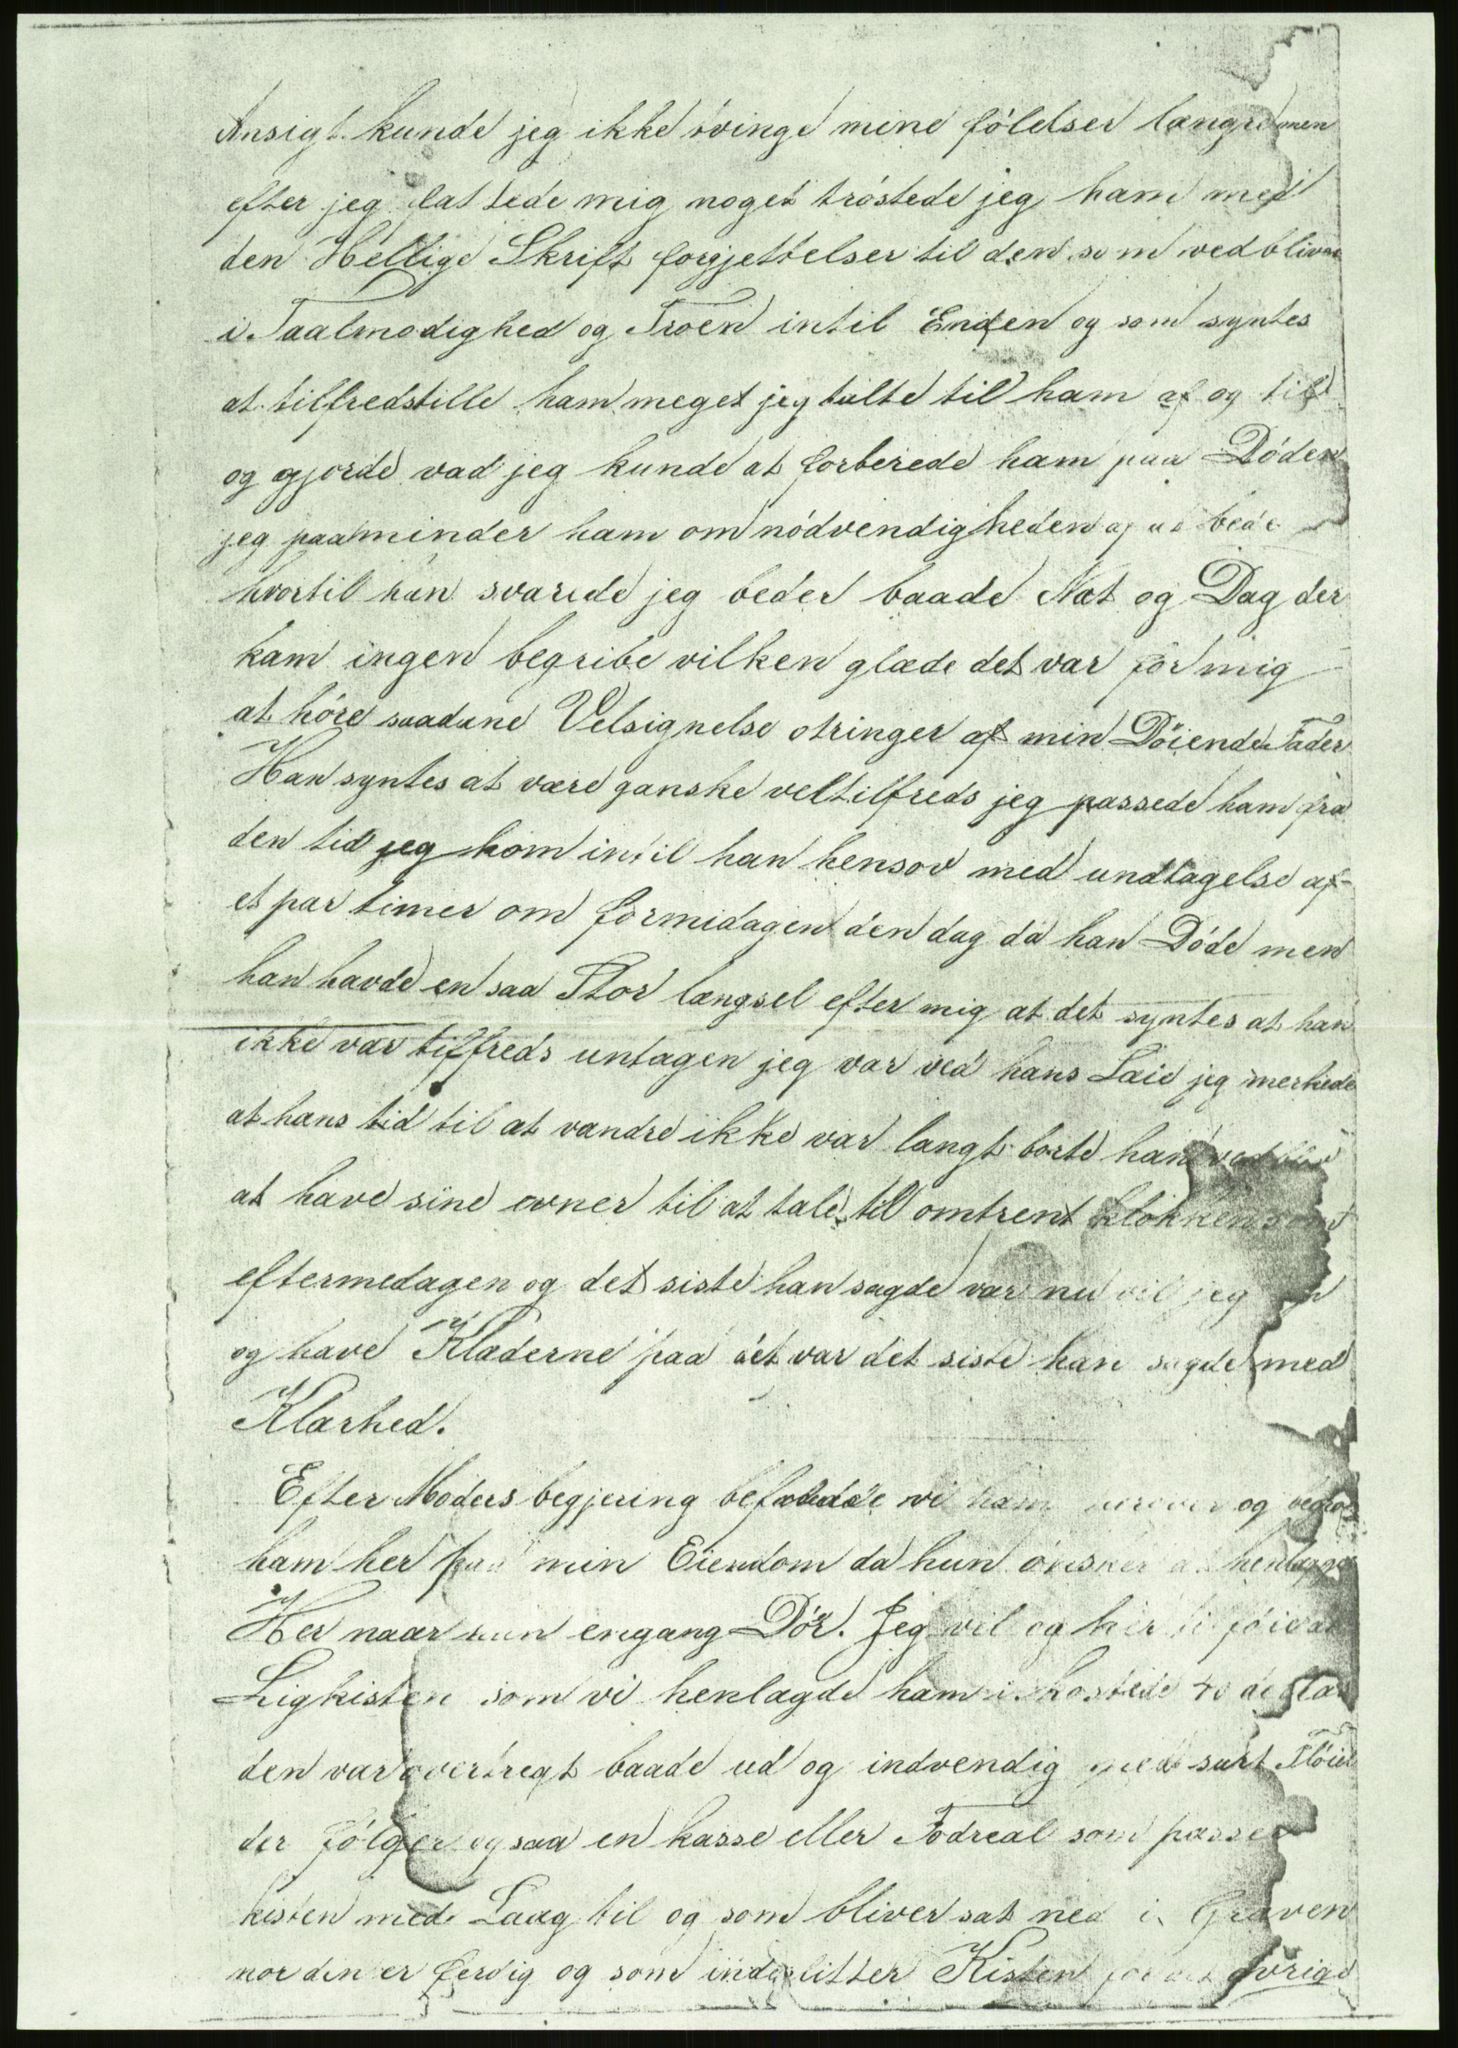 Ansigt kunde jeg ikke svinge mine fölelser længre men
efter jeg fattede mig noget tröstede jeg ham med
den Hellige Skrift forgjettelser til den som vedbliver
i Taalmodighed og Troen intil Enden og som syntes
at tilfredstille ham meget jeg talte til ham af og til
og gjorde vad jeg kunde at forberede ham paa Döden
jeg paaminder ham om nödvendigheden af at bede
hvortil han svarede jeg beder baade Nat og Dag der
kam ingen begribe vilken glæde det var for mig
at höre saadane Velsignelse otringer af min Döiende Fader
Han syntes at være ganske veltilfreds jeg passede ham fra
den tid jeg kom intil han hensov med undtagelse af
et par timer om formidagen den dag da han Döde men
han havde en saa Stor længsel efter mig at det syntes at han
ikke var tilfreds untagen jeg var ved hans Laie jeg merkede
at hans tid til at vandre ikke var langt borte han vedblev
at have sine evner til at tale til omtrent klokken
eftermedagen og det siste han sagde var nu vil jeg
og have Klæderne paa det var det siste han sagde med
Klarhed.
Efter Moders begjering befolede vi ham og
ham her paa min Eiendom da hun önsker at
Her naar hun engang Dör. Jeg vil og her
Ligkisten som vi henlagde ham i kostede 40
den var overtregt baade ud og indvendig med sort Flöiel
der fölger ogsaa en kasse eller Fodreal som passer
kisten med Laag til og som bliver sat ned i Graven
nor den er ferdig og som indeslitter Kisten for det övrige